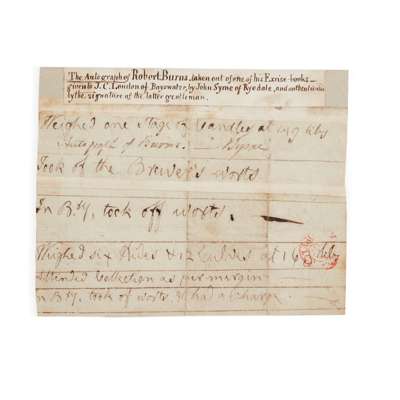 The Autograph of Robert Burns, taken out of one of his Excise-books —
given to J. C. London of Bayswater, by John Syme of Ryedale, and authenticated
by the signature of the latter gentleman.
Weighed one stage of Candles at
Autograph of Burns. Syme
Took of the Brewer's worts
In Bty, took off worts.
Weighed six Hides & 12 at 16
attended Collection as per margin
In Bty, took of worts, & had a Charge.